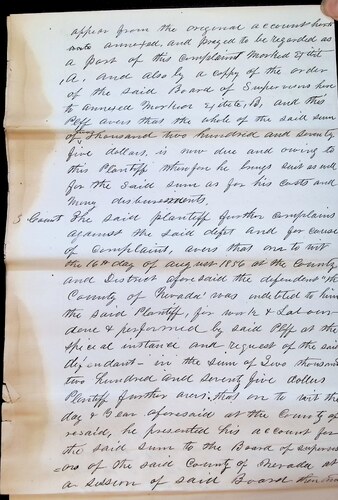 appear from the original account here
unto annexed, and prayed to be regarded as
a part of this complaint Marked Exhibit
A. and also by a copy of the order
of the said Board of Supervisors here
to annexed Marked Exhibit, B, and this
Plff avers that the whole of the said sum
of thousand two hundred and seventy
five dollars, is now due and owing to
this Plantiff wherefore he brings suit as well
for the said sum as for his costs and
disbursements.
3 Count The said plantiff further complains
against the said deft and for cause
of complaint, avers that on to wit
the 16th day of August 1856 at the County
and District aforesaid the defendant "the
County of Nevada" was indebted to him
the said Plantiff, for work & Labor
done & performed by said Plff at the
special instance and request of the said
defendant - in the sum of Two thousand
two hundred and seventy five dollars
Plantiff further avers, that on to wit the
day & year aforesaid at the County afo
resaid, he presented his account for
the said sum to the Board of supervis
ors of the said County of Nevada at
a session of said Board